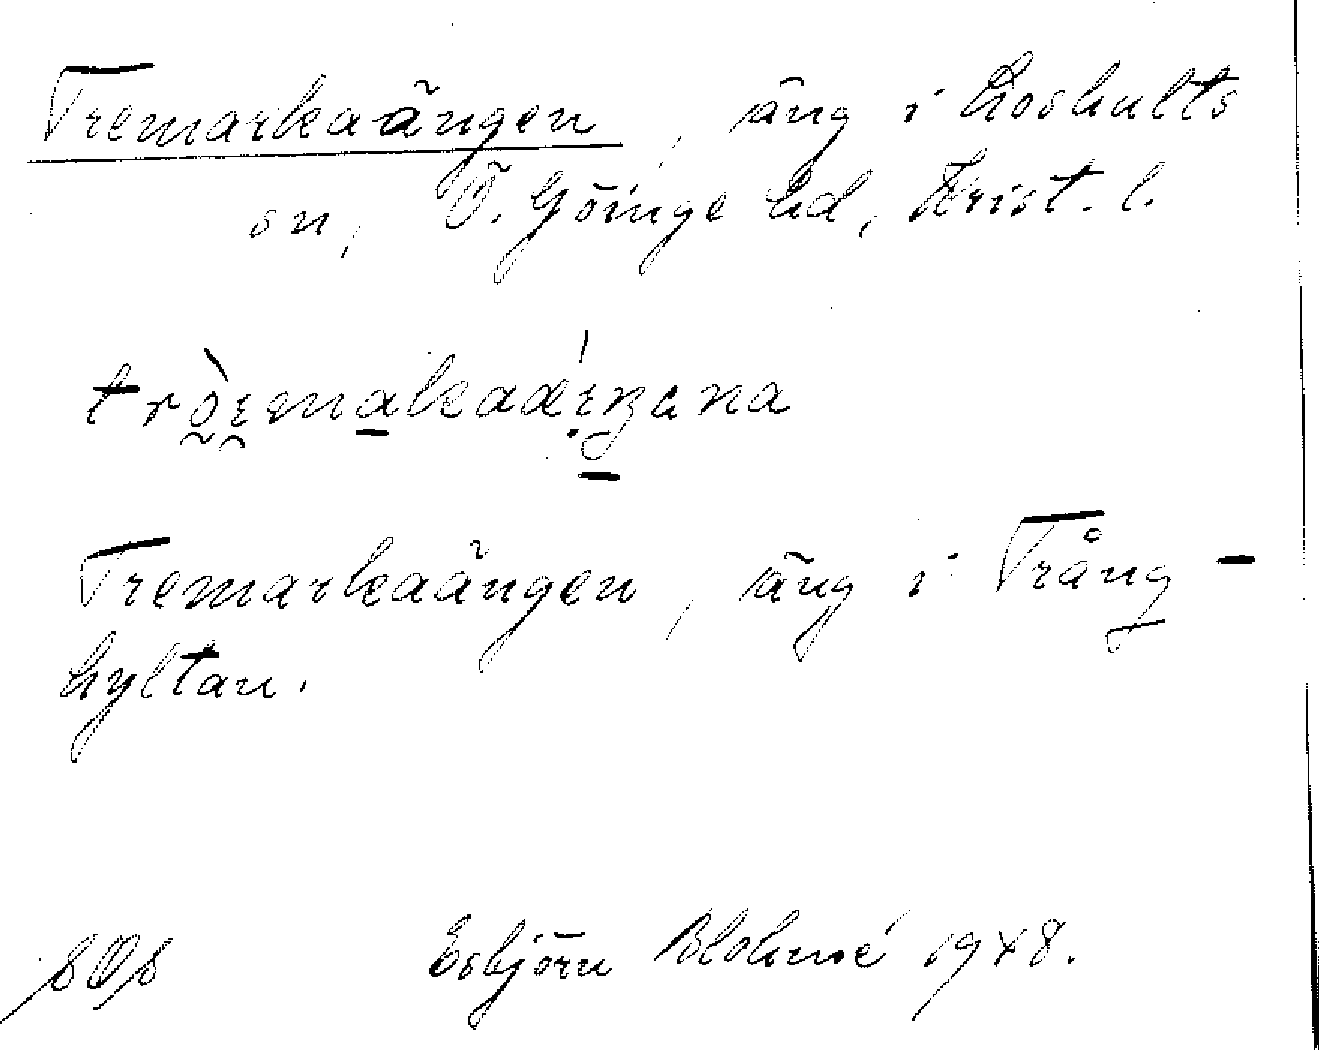 Tremarkaängen, äng i Loshults
sn, Ö. Göinge hd, Krist. l.
Tremarkaängen, äng i Trång-
hyltan.
Esbjörn Blohmé 1948.